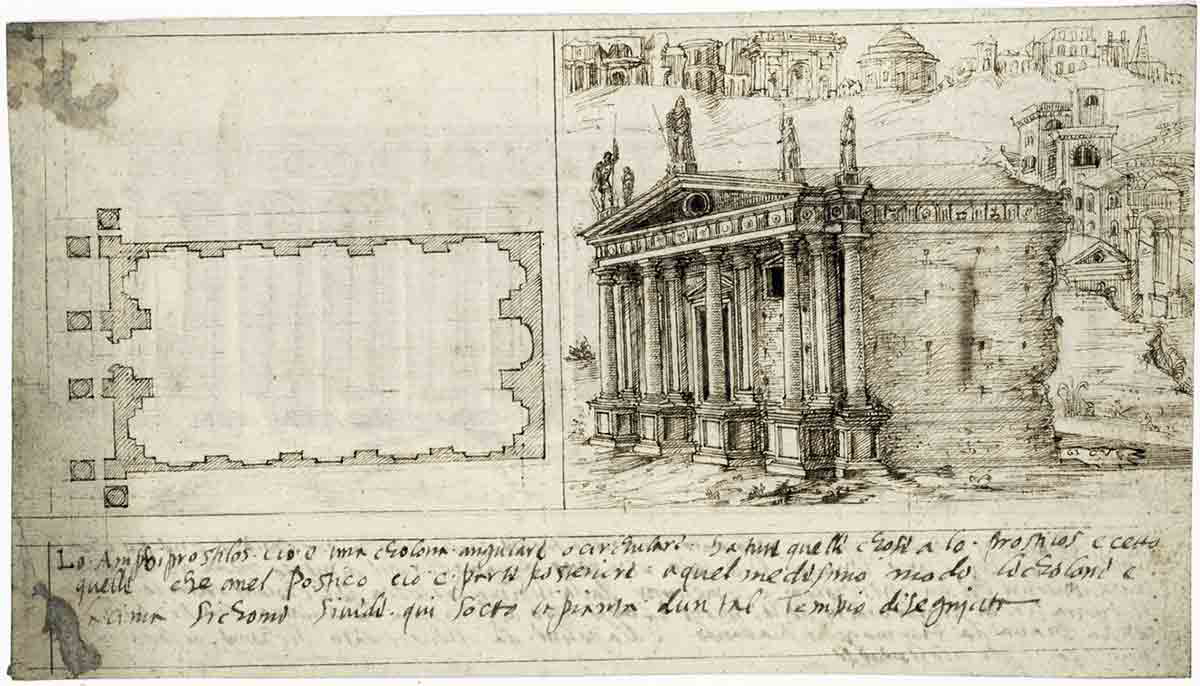 Lo Amphiprostilos cio e una cholona angulare o circhulare ha tute quelle chose a lo prostilos ecetto
quelle che nel Postico cio e parte posteriore a quel medesimo modo le cholone e
cima sichome si vide qui socto la pianta dun tal Tempio disegniata